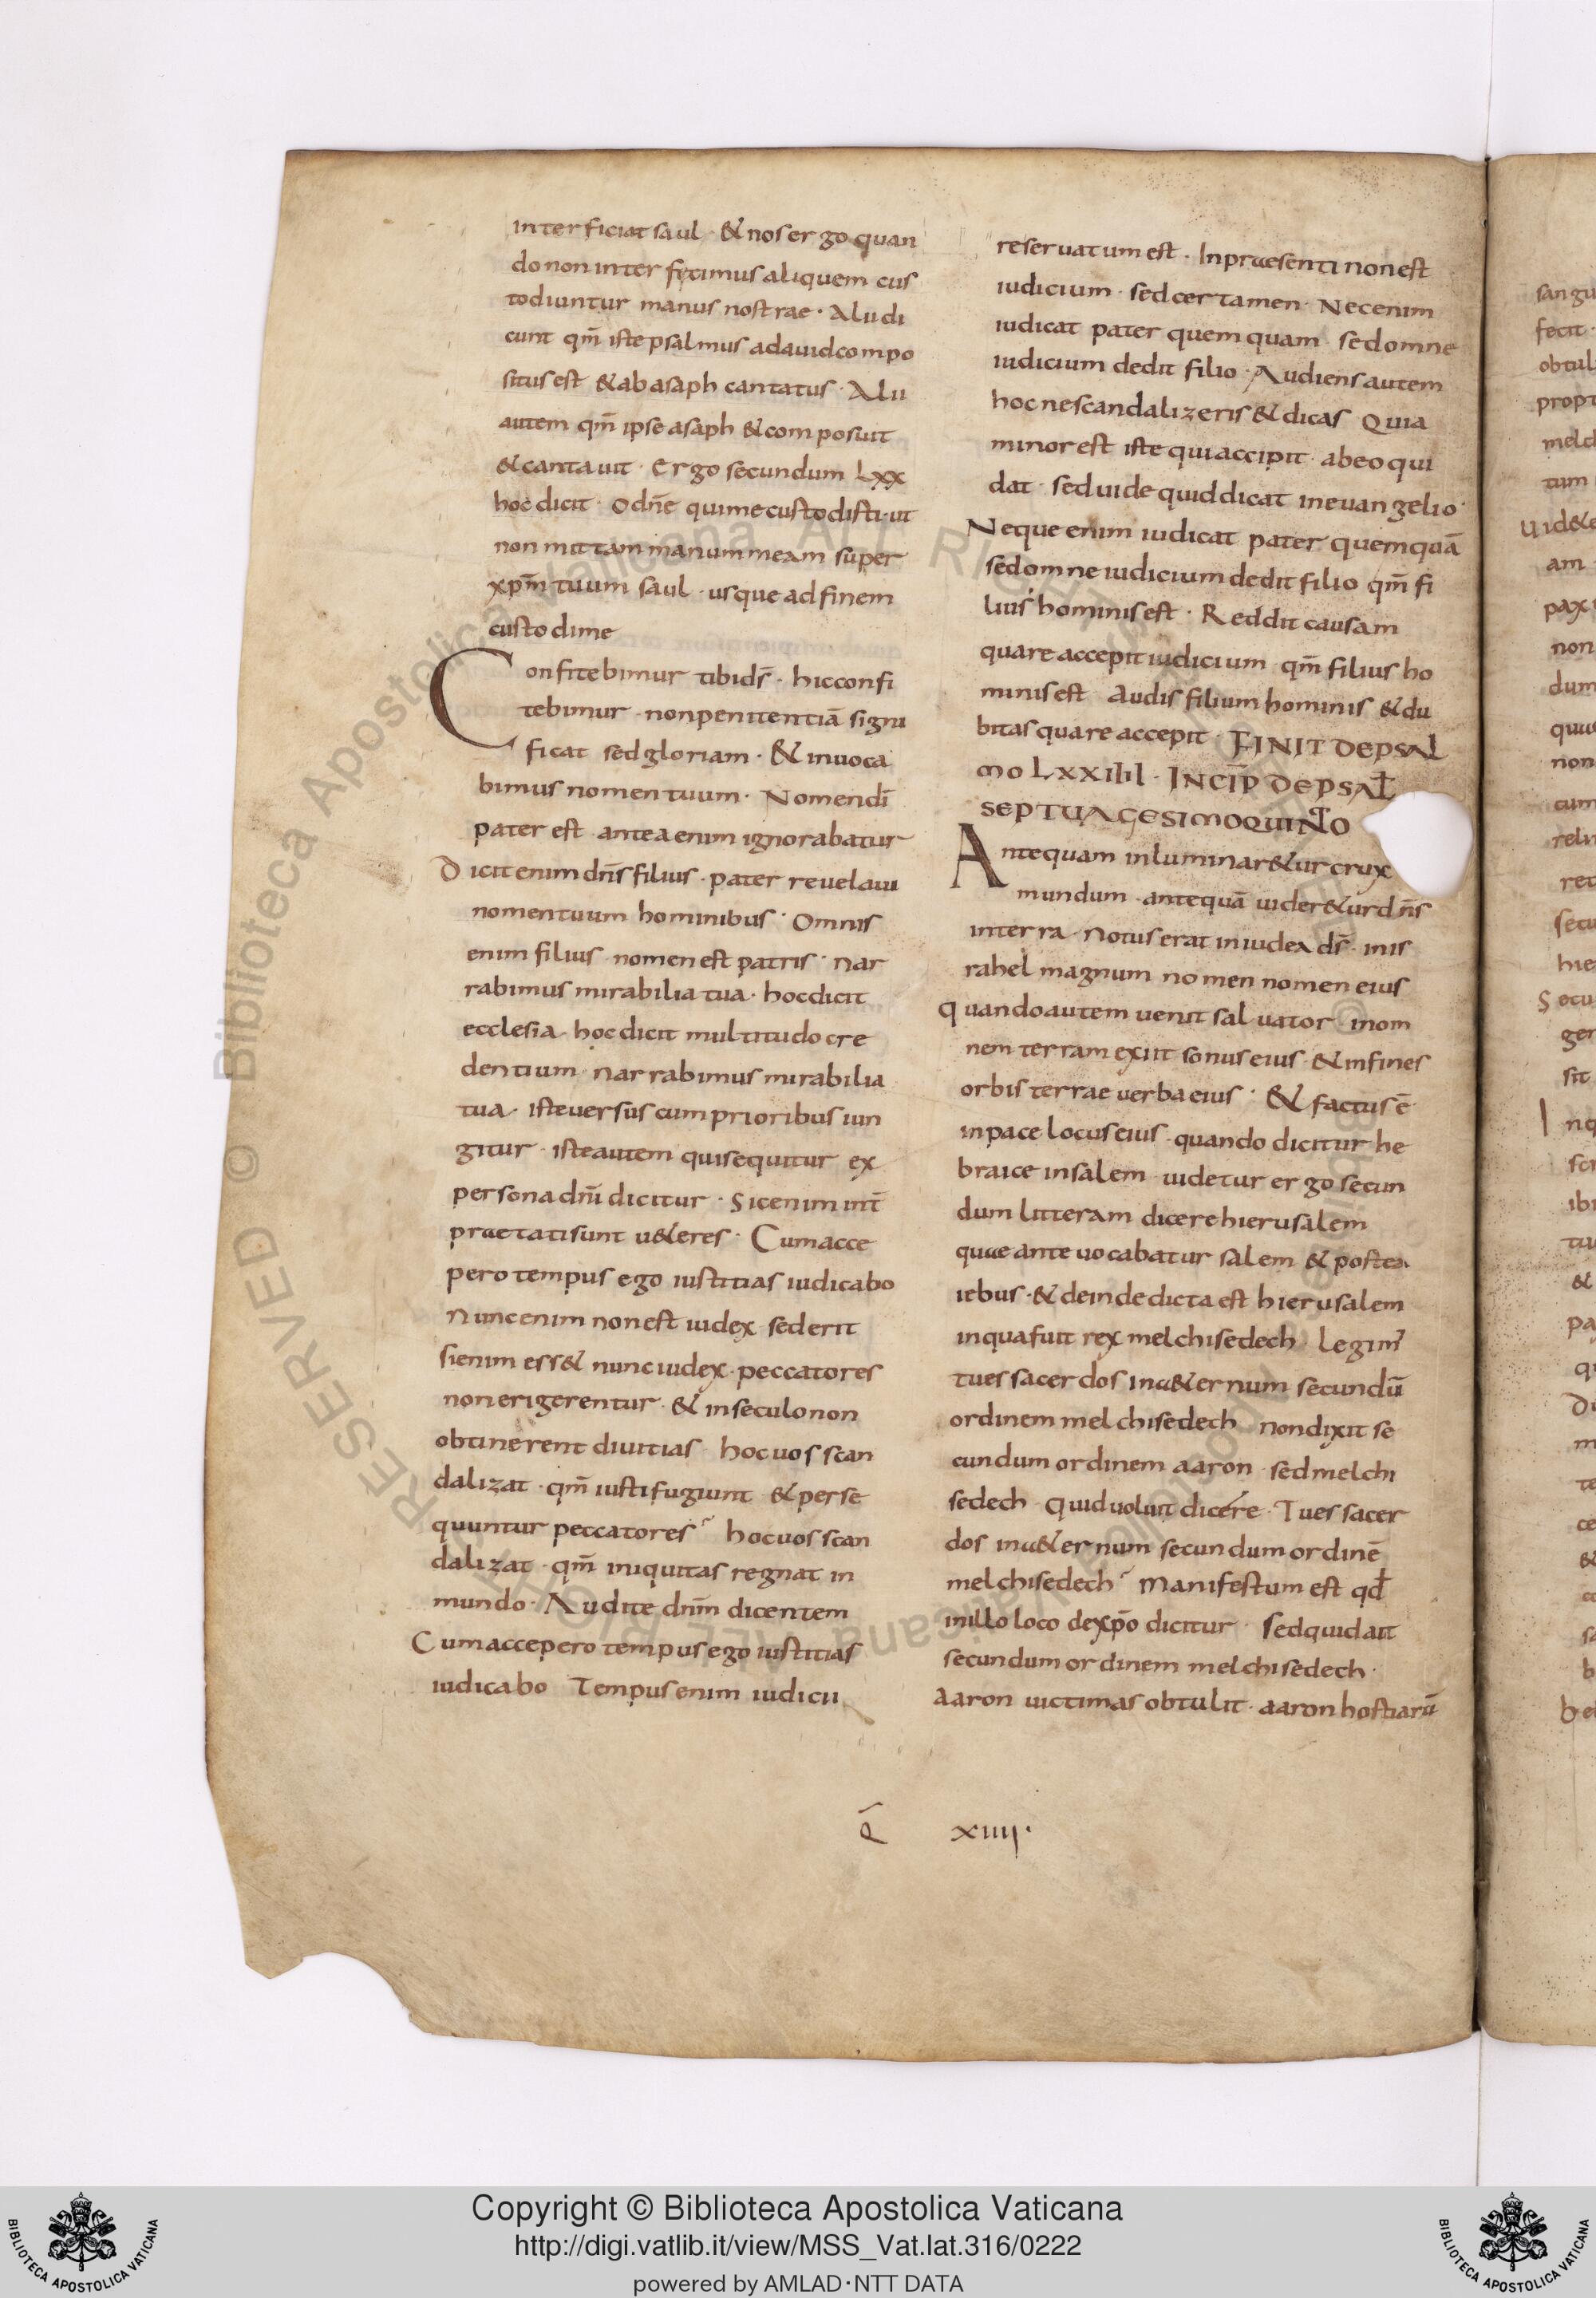 interficiat saul · & nos ergo quan
do non interfecimus aliquem cus
todiuntur manus nostrae · Alii di
cunt qm̄ iste psalmus a dauid compo
situs est & ab asaph cantatus · Alii
autem qm̄ ipse asaph & composuit
& cantauit · Ergo secundum Lxx
hoc dicit · O dn̄e qui me custodisti · ut
non mittam manum meam super
xpm̄ tuum saul · usque ad finem
custodi me
Confitebimur tibi ds̄ · hic confi
tebimur · non penitentiā signi
ficat sed gloriam · & inuoca
bimus nomen tuum · Nomen dī
pater est · antea enim ignorabatur
Dicit enim dn̄s filius · pater reuelaui
nomen tuum hominibus · Omnis
enim filius nomen est patris · Nar
rabimus mirabilia tua · hoc dicit
ecclesia · hoc dicit multitudo cre
dentium · Narrabimus mirabilia
tua · iste uersus cum prioribus iun
gitur · iste autem qui sequitur ex
persona dnī dicitur · Sic enim int̄
praetati sunt u&eres · Cum acce
pero tempus ego iustitias iudicabo
Nunc enim non est iudex sed erit
si enim ess& nunc iudex · peccatores
non erigerentur · & in seculo non
obtinerent diuitias hoc uos scan
dalizat · qm̄ iusti fugiunt & perse
quuntur peccatores hoc uos scan
dalizat · qm̄ iniquitas regnat in
mundo · Audite dnm̄ dicentem
Cum accepero tempus ego iustitias
iudicabo Tempus enim iudicii
reseruatum est · In praesenti non est
iudicium · sed certamen · Nec enim
iudicat pater quemquam sed omne
iudicium dedit filio · Audiens autem
hoc ne scandalizeris & dicas Quia
minor est iste qui accipit · ab eo qui
dat · sed uide quid dicat in euangelio ·
Neque enim iudicat pater quemquā
sed omne iudicium dedit filio qm̄ fi
lius hominis est · Reddit causam
quare accepit iudicium qm̄ filius ho
minis est Audis filium hominis & du
bitas quare accepit · FINIT DE PSAL
MO LXXIIII · INCIP̄ DE PSAL̄
SEPTUAGESIMO QUINTO
Antequam inluminar&ur crux
mundum · antequā uider&ur dn̄s
in terra · Notus erat in iudea ds̄ · in is
rahel magnum nomen nomen eius
Quando autem uenit saluator · in om
nem terram exiit sonus eius · & in fines
orbis terrae uerba eius · & factus ē
in pace locus eius · quando dicitur he
braice in salem · uidetur ergo secun
dum litteram dicere hierusalem
quae ante uocabatur salem & postea
iebus · & deinde dicta est hierusalem
in qua fuit rex melchisedech · Legim'
tu es sacerdos in a&ernum secundū
ordinem melchisedech non dixit se
cundum ordinem aaron · sed melchi
sedech · Quid uoluit dicere · Tu es sacer
dos in a&ernum secundum ordinē
melchisedech Manifestum est qd̄
in illo loco de xpō dicitur · Sed quid ait
secundum ordinem melchisedech ·
Aaron uictimas obtulit · aaron hostiarū
xiiii ·
sangu
fecit ·
obtul
propt
melch
tum
Uid&e
am ·
pax
non
dum
quia
non
cum
Copyright © Biblioteca Apostolica Vaticana
http://digi.vatlib.it/view/MSS_Vat.lat.316/0222
powered by AMLAD·NTT DATA
BIBLIOTECA APOSTOLICA VATICANA
BIBLIOTECA APOSTOLICA VATICANA